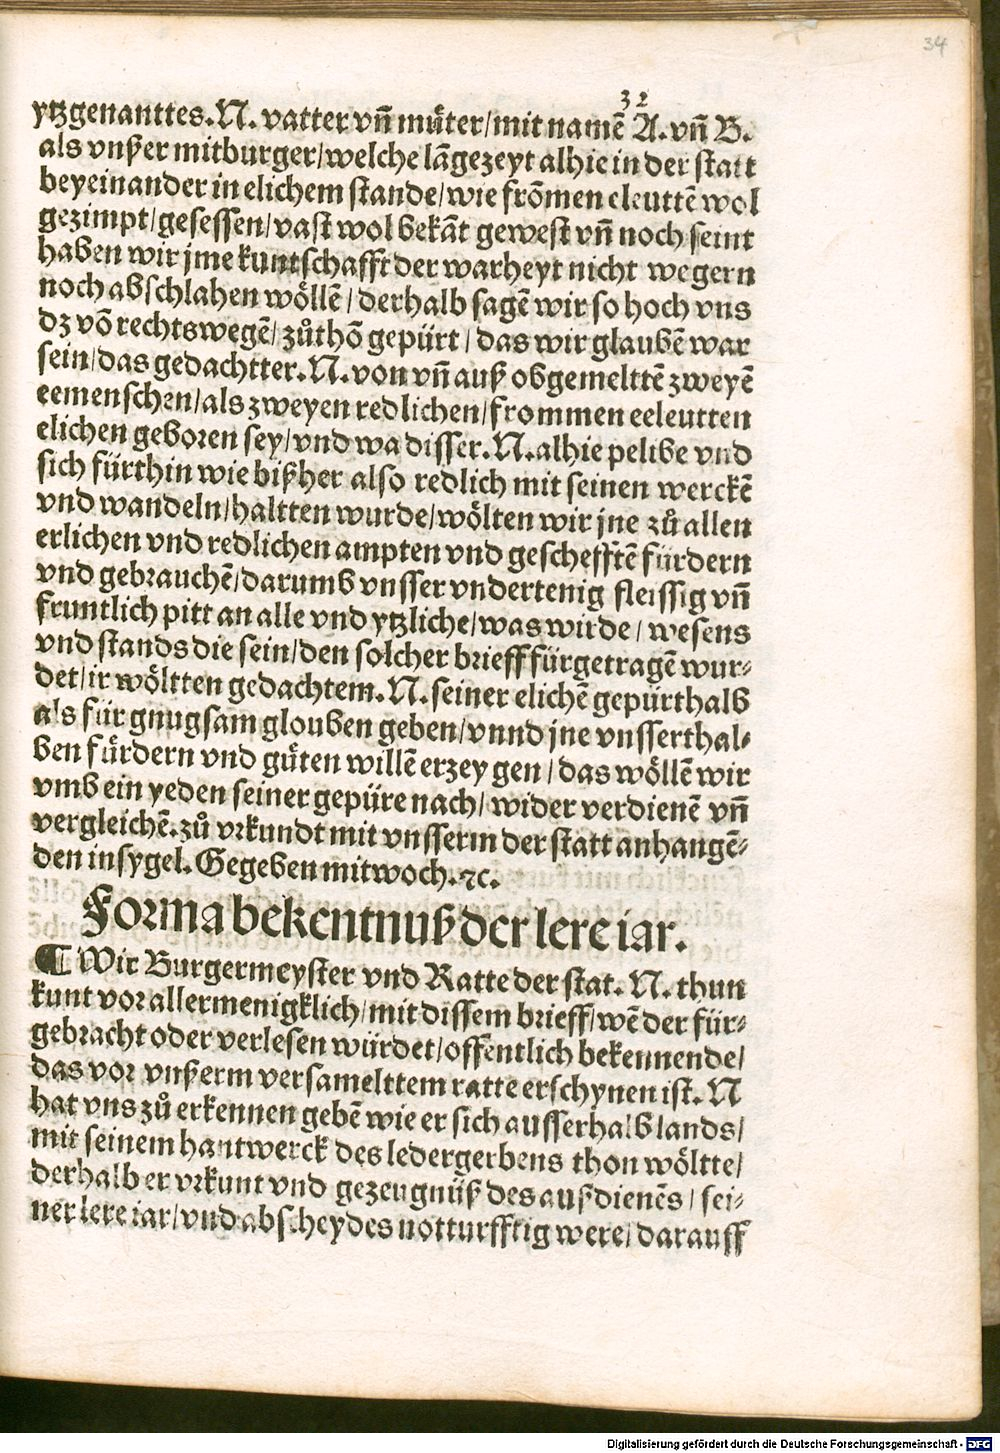 34
32
ytzgenanttes. N. vatter vn̄ muͤter/mit namē A. vn̄ B.
als vnßer mitburger/welche lāgezeyt alhie in der statt
beyeinander in elichem stande/wie frōmen eleuttē wol
gezimpt/gesessen/vast wol bekāt gewest vn̄ noch seint
haben wir jme kuntschafft der warheyt nicht wegern
noch abschlahen woͤllē/derhalb sagē wir so hoch vns
dz vō rechtswegē/zuͦthō gepürt/das wir glaubē war
sein/das gedachtter. N. von vn̄ auß obgemelttē zweyē
eemenschen/als zweyen redlichen/frommen eeleutten
elichen geboren sey/vnd wa disser. N. alhie pelibe vnd
sich fürthin wie bißher also redlich mit seinen werckē
vnd wandeln/haltten wurde/woͤlten wir jne zuͦ allen
erlichen vnd redlichen ampten vnd gescheff̄tē fürdern
vnd gebrauchē/darumb vnsser vndertenig fleissig vn̄
fruntlich pitt an alle vnd ytzliche/was wirde/wesens
vnd stands die sein/den solcher brieff fürgetragē wur-
det/ir woͤltten gedachtem. N. seiner elichē gepürthalb
als für gnugsam glouben geben/vnnd jne vnsserthal-
ben fürdern vnd guͤten willē erzeygen/das woͤllē wir
vmb ein yeden seiner gepüre nach/wider verdienē vn̄
vergleichē. zuͦ vrkundt mit vnsserm der statt anhangē-
den insygel. Gegeben mitwoch. ⁊c.
Forma bekentnuß der lere iar.
¶ Wir Burgermeyster vnd Ratte der stat. N. thun
kunt vor allermenigklich/mit dissem brieff/wē der für-
gebracht oder verlesen würdet/offentlich bekennende/
das vor vnßerm versamelttem ratte erschynen ist. N
hat vns zuͦ erkennen gebē wie er sich ausserhalb lands/
mit seinem hantwerck des ledergerbens thon woͤltte/
derhalb er vrkunt vnd gezeugnüß des außdienēs/sei-
ner lere iar/vnd abscheydes notturfftig were/darauff
Digitalisierung gefördert durch die Deutsche Forschungsgemeinschaft - DFG